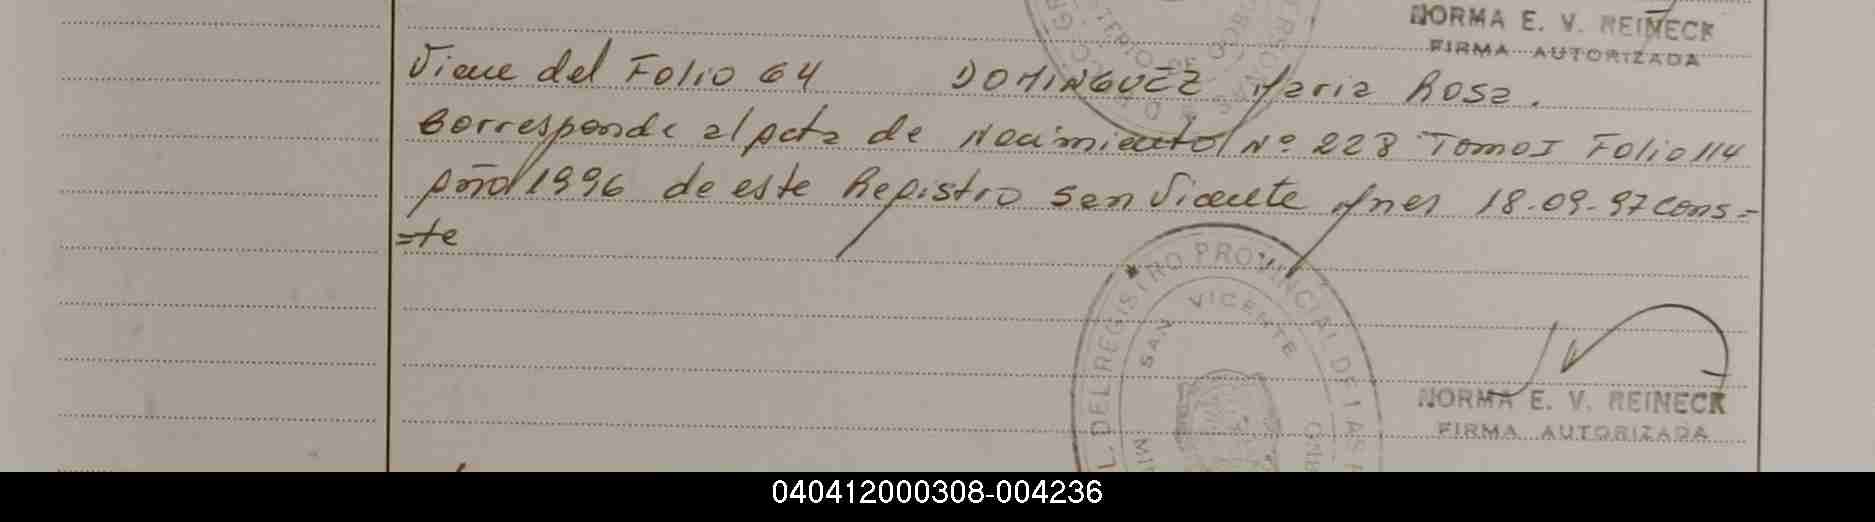 NORMA E. V. REINECK
FIRMA AUTORIZADA
Viene del Folio 64 DOMINGUEZ Maria Rosa.
Corresponde al Acta de Nacimiento Nº 228 Tomo I Folio 114
Año 1996 de este Registro San Vicente Mnes 18-09-97 Cons=
=te
REGISTRO PROVINCIAL DE LAS
SAN VICENTE
NORMA E. V. REINECK
FIRMA AUTORIZADA
040412000308-004236